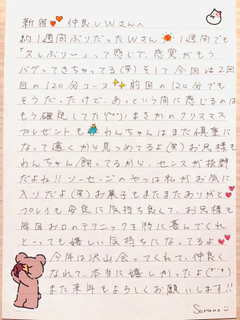 新宿 仲良しWさんへ
約1週間ぶりだったWさん 1週間でも
「久しぶりー」って感じで、感覚がもう
バグってきちゃってる(笑)そして今回は2回
目の120分コース 前回の120分でも
そうだったけど、あっという間に感じるのは
もう確定してた まさかのクリスマス
プレゼントも わんちゃんはまだ慎重に
なって遠くから見つめてるよ(笑)お兄様も
わんちゃん飼ってるから、センスが抜群
だよね!! ソーセージのやつは私がお気に
入りだよ(笑)お菓子もまたまたありがと
プレイも安定に気持ち良くて、お兄様も
毎回お口のテクニックを特に喜んでくれ
とっても嬉しい気持ちになってるよ
今年は沢山会ってくれて、仲良く
なれて、本当に嬉しかったよ
また来年もよろしくお願いします!!